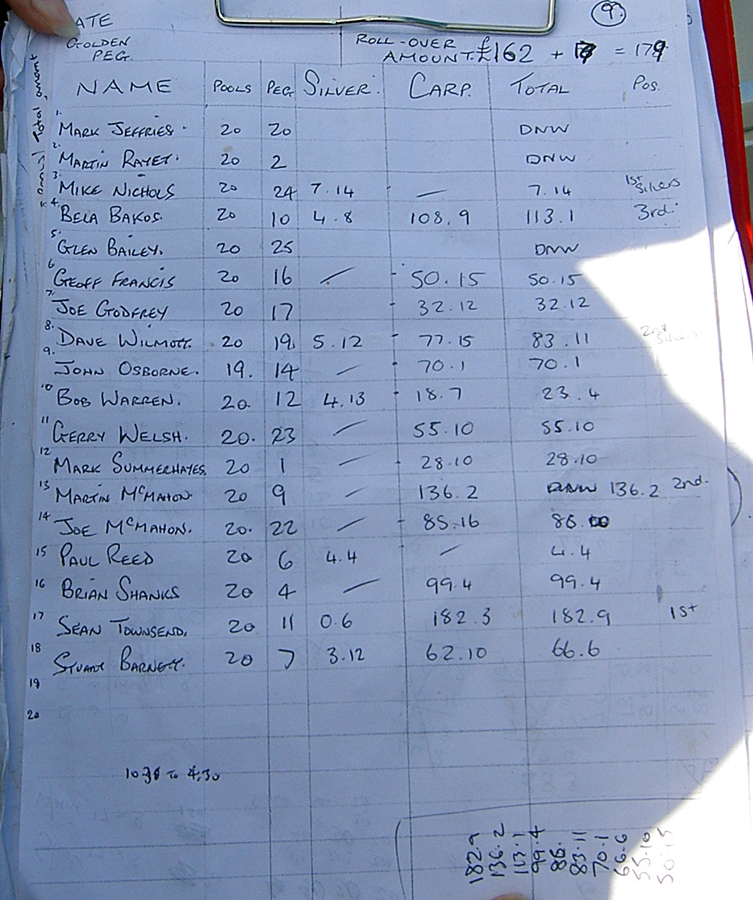 ATE
9
GOLDEN PEG. ROLL-OVER AMOUNT. £162 + 17 = 179
Total amount
NAME POOLS PEG SILVER. CARP. TOTAL Pos.
1. MARK JEFFRIES. 20 20 DNW
2. MARTIN RAYET. 20 2 DNW
3. MIKE NICHOLS 20 24 7.14 — 7.14 1st Silvers
4. BELA BAKOS. 20 10 4.8 108.9 113.1 3rd.
5. GLEN BAILEY. 20 25 DNW
6 GEOFF FRANCIS 20 16 — 50.15 50.15
7. JOE GODFREY 20 17 32.12 32.12
8. DAVE WILMOTT. 20 19 5.12 77.15 83.11 2nd Silvers
9. JOHN OSBORNE. 19. 14 — 70.1 70.1
10 BOB WARREN. 20. 12 4.13 18.7 23.4
11 GERRY WELSH. 20. 23 — 55.10 55.10
12 MARK SUMMERHAYES. 20 1 — 28.10 28.10
13 MARTIN McMAHON. 20 9 — 136.2 DNW 136.2 2nd.
14 JOE McMAHON. 20. 22 — 85.16 86.
15 PAUL REED 20 6 4.4 — 4.4
16 BRIAN SHANKS 20 4 — 99.4 99.4
17 SEAN TOWNSEND. 20 11 0.6 182.3 182.9 1st
18 STUART BARNETT. 20 7 3.12 62.10 66.6
19
20
10.30 to 4.30
182.9
136.2
113.1
99.4
86.
83.11
70.1
66.6
55.10
50.15